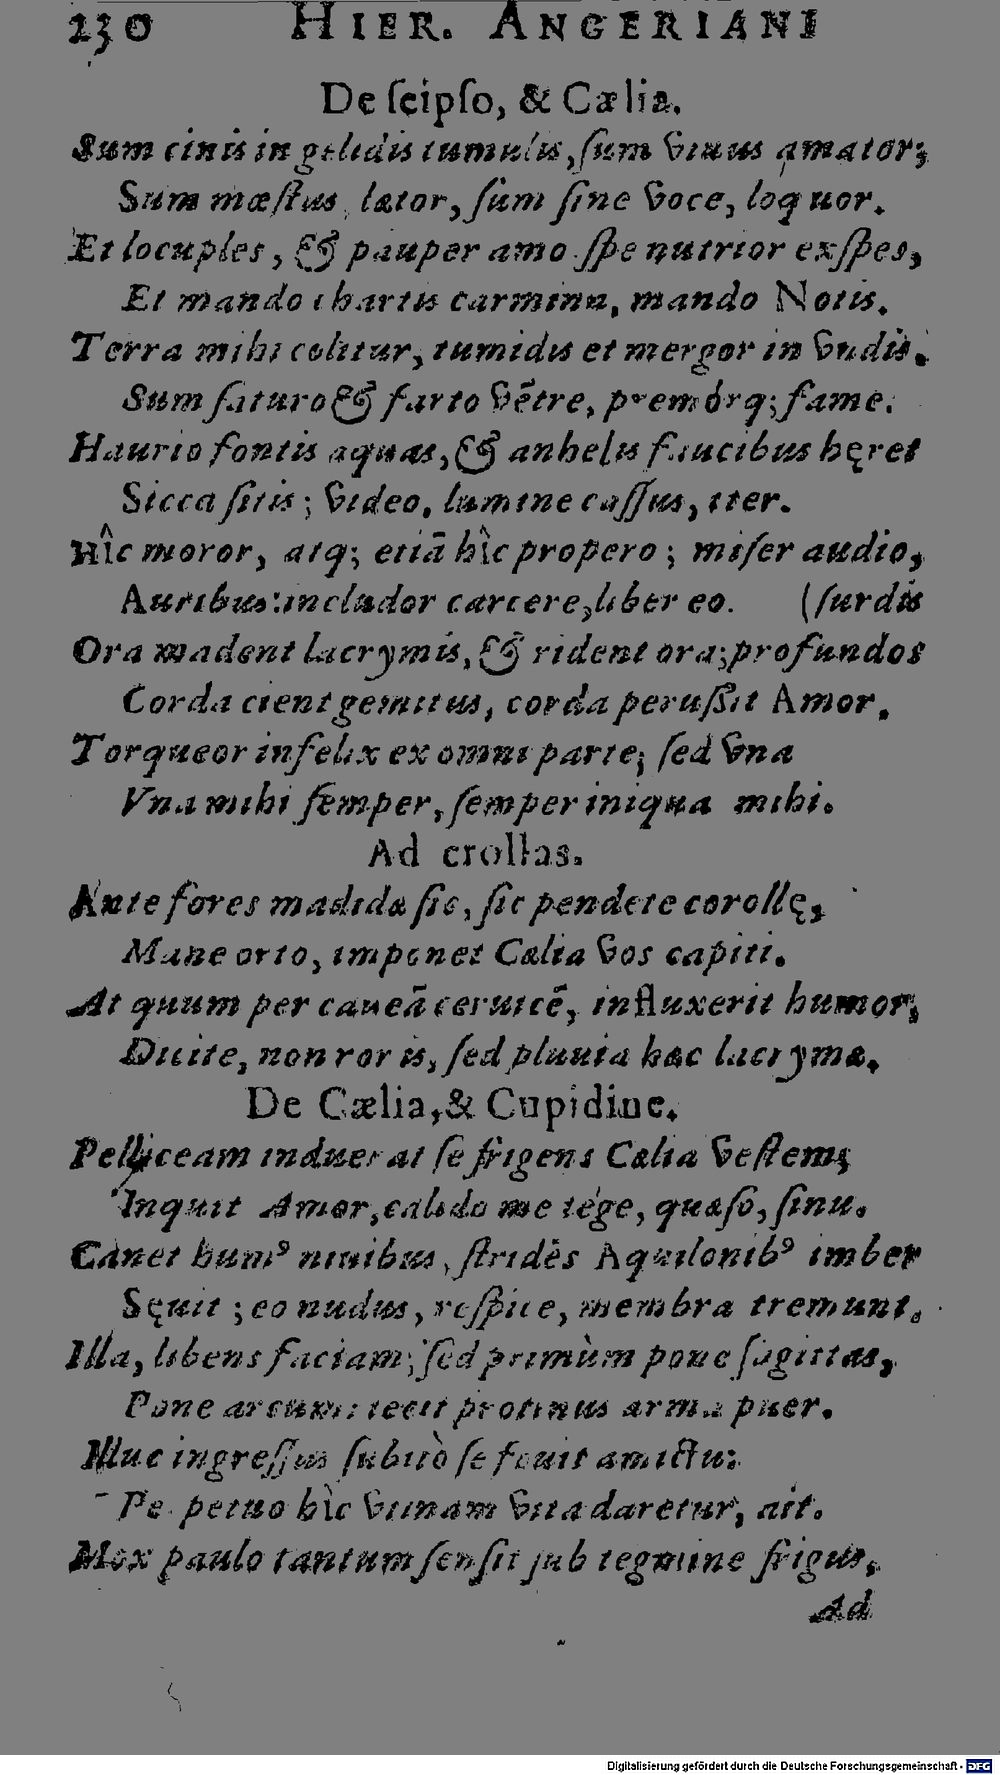 230 HIER. ANGERIANI
De ſeipſo, & Cælia.
Sum cinis in gelidis tumulis, ſum viuus amator;
Sum mæſtus lætor, ſum ſine voce, loquor.
Et locuples, & pauper amo ſpe nutrior exſpes,
Et mando chartis carmina, mando Notis.
Terra mihi colitur, tumidis et mergor in vndis.
Sum ſaturo & farto vẽtre, premórq; fame.
Haurio fontis aquas, & anhelis faucibus hęret
Sicca ſitis; video, lumine caſſus, iter.
Hîc moror, atq; etiã hìc propero; miſer audio,
Auribus: includor carcere, liber eo. (ſurdis
Ora madent lacrymis, & rident ora; profundos
Corda cient gemitus, corda peruſſit Amor.
Torqueor infelix ex omni parte; ſed vna
Vna mihi ſemper, ſemper iniqua mihi.
Ad crollas.
Ante fores madidæ ſic, ſic pendete corollę,
Mane orto, imponet Cælia vos capiti.
At quum per caueã ceruicẽ, influxerit humor,
Dicite, non roris, ſed pluuia hæc lacrymæ.
De Cælia, & Cupidine.
Pelliceam induerat ſe frigens Cælia veſtem;
Inquit Amor, calido me tége, quæſo, ſinu.
Canet humꝰ niuibus, ſtridẽs Aquilonibꝰ imber
Sęuit; eo nudus, reſpice, membra tremunt.
Illa, libens faciam; ſed primùm pone ſagittas,
Pone arcum: iecit protinus arma puer.
Illuc ingreſſus ſubitò ſe fouit amictu:
Perpetuo hìc vtinam vita daretur, ait.
Mox paulo tantum ſenſit ſub tegmine frigus,
Ad
Digitalisierung gefördert durch die Deutsche Forschungsgemeinschaft - DFG